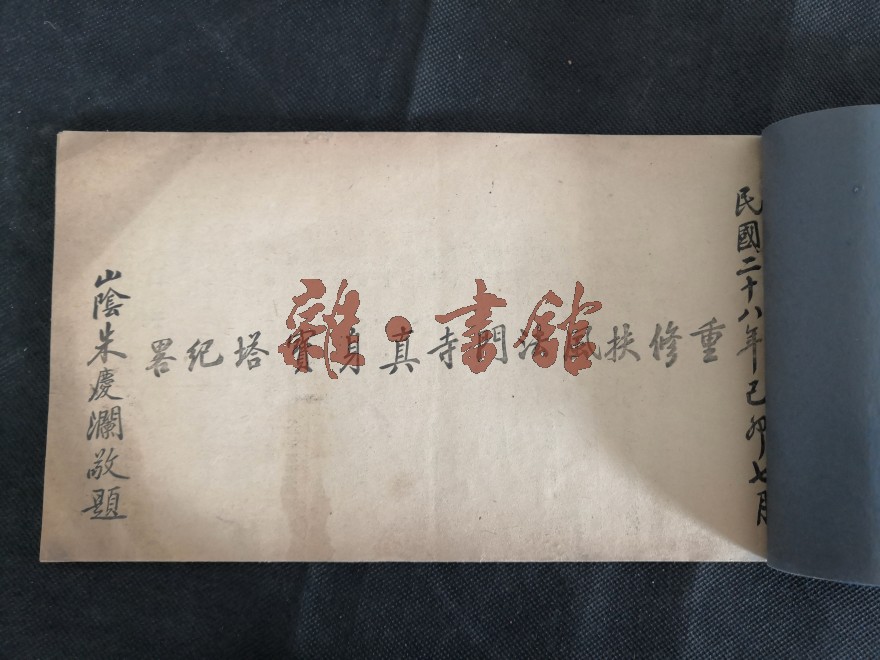 民國二十八年己卯七月
重修扶風法門寺真身寶塔紀畧
山陰朱慶瀾敬題
雜·書館